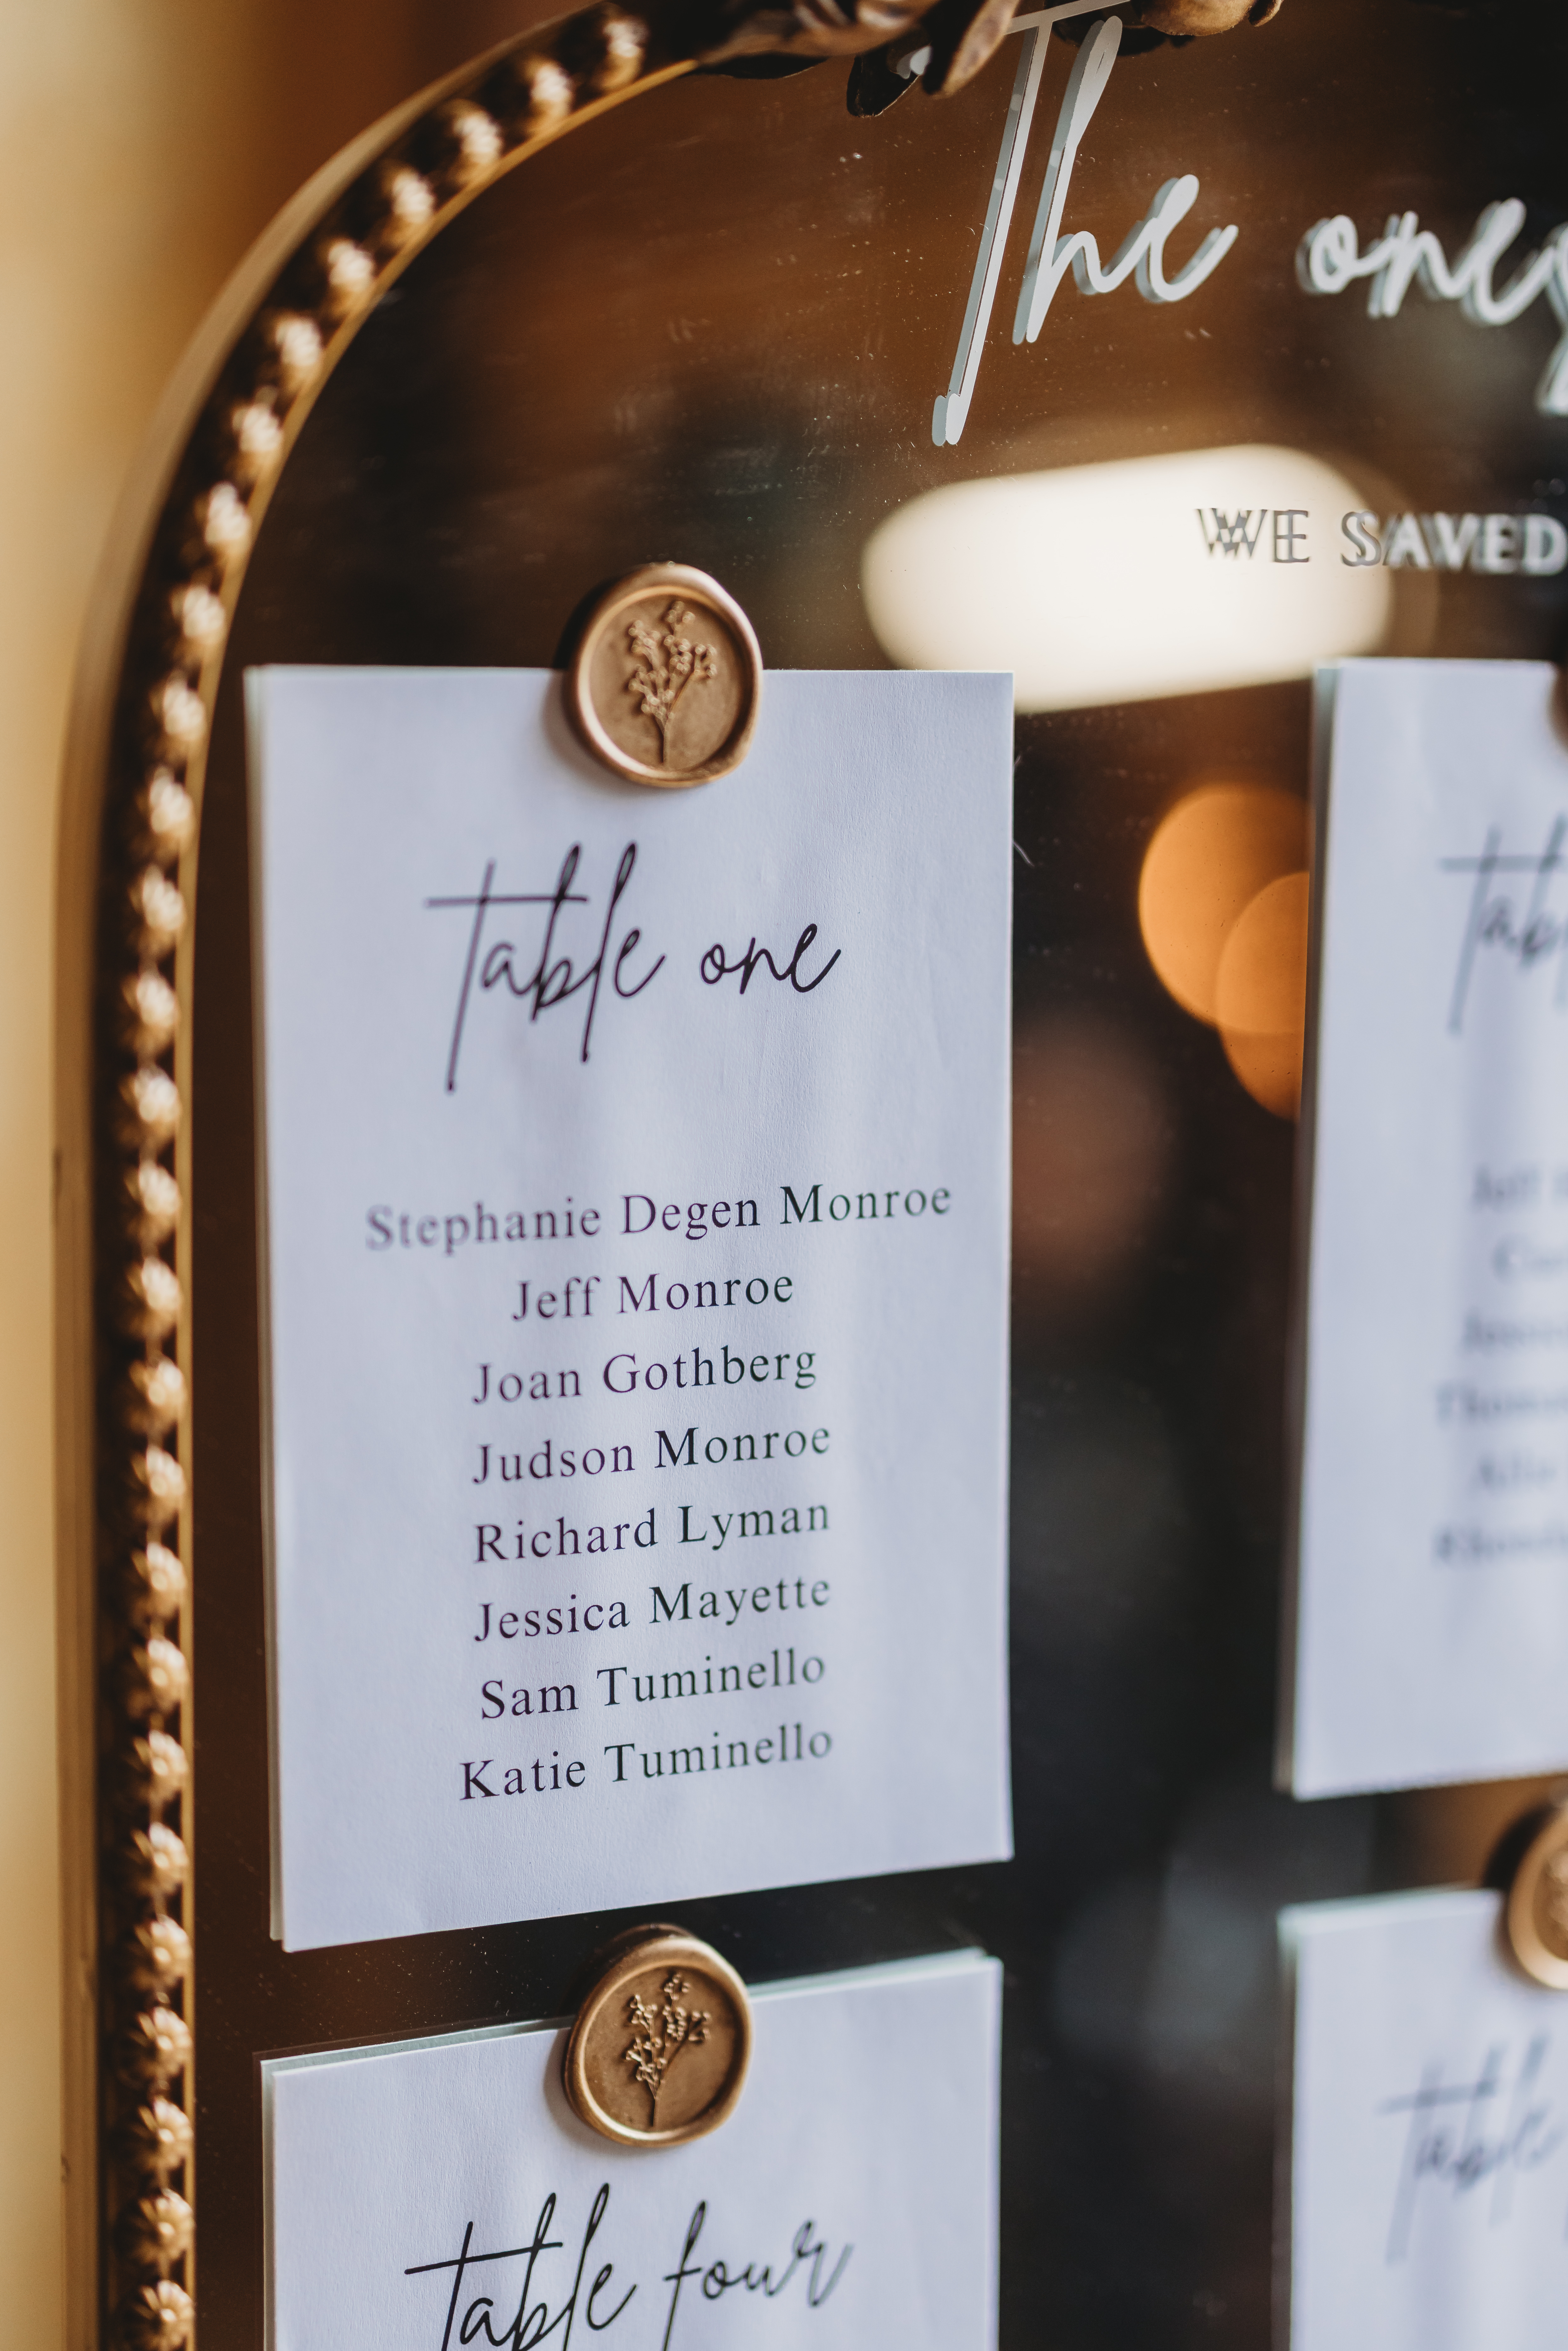 The ones
WE SAVED
table one
Stephanie Degen Monroe
Jeff Monroe
Joan Gothberg
Judson Monroe
Richard Lyman
Jessica Mayette
Sam Tuminello
Katie Tuminello
table four
table